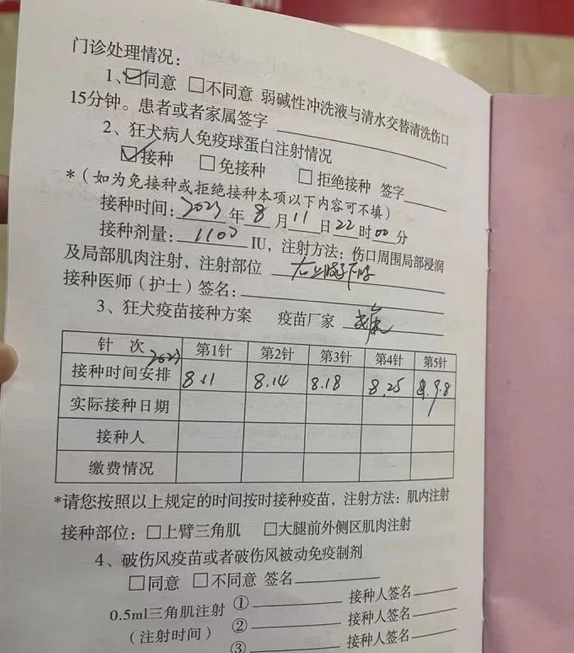 门诊处理情况：
1、☑同意 □不同意 弱碱性冲洗液与清水交替清洗伤口
15分钟。患者或者家属签字
2、狂犬病人免疫球蛋白注射情况
☑接种 □免接种 □拒绝接种 签字
*（如为免接种或拒绝接种本项以下内容可不填）
接种时间：2023年8月11日22时00分
接种剂量：1100 IU，注射方法：伤口周围局部浸润
及局部肌肉注射，注射部位
接种医师（护士）签名：
3、狂犬疫苗接种方案 疫苗厂家
针 次 2023 第1针 第2针 第3针 第4针 第5针
接种时间安排 8.11 8.14 8.18 8.25 9.8
实际接种日期
接种人
缴费情况
*请您按照以上规定的时间按时接种疫苗，注射方法：肌内注射
接种部位：□上臂三角肌 □大腿前外侧区肌肉注射
4、破伤风疫苗或者破伤风被动免疫制剂
□同意 □不同意 签名
0.5ml三角肌注射 ① 接种人签名
（注射时间） ② 接种人签名
③ 接种人签名